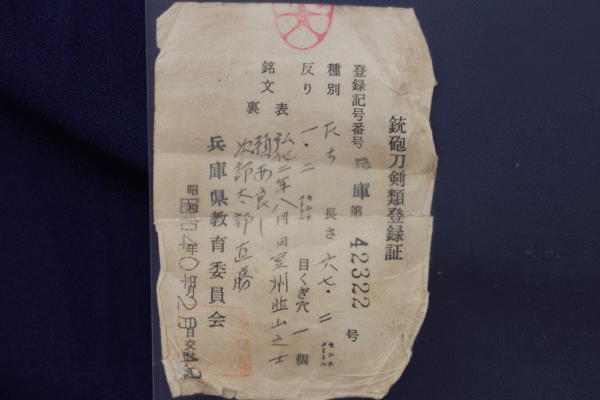 銃砲刀剣類登録証
登録記号番号 兵庫 第 42322 号
種別 たち 長さ 六七・二 センチメートル
反り 一・二 センチメートル 目くぎ穴 一 個
銘文 表 弘化二年八月日豆州韮山之士
裏 次郎太郎直勝
兵庫県教育委員会
昭和 40年 月 2日交付